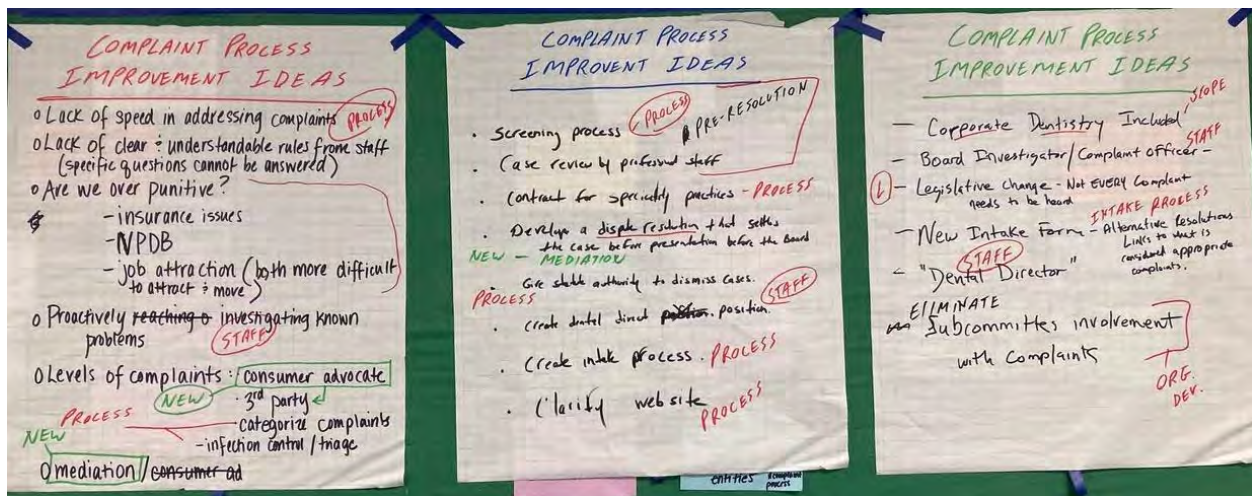 COMPLAINT PROCESS
IMPROVEMENT IDEAS
o Lack of speed in addressing complaints PROCESS
o Lack of clear & understandable rules frome staff
(specific questions cannot be answered)
o Are we over punitive?
- insurance issues
- NPDB
- job attraction (both more difficult
to attract & move)
o Proactively reaching o investigating known
problems STAFF
o Levels of complaints: consumer advocate
NEW · 3rd party
PROCESS categorize complaints
- infection control / triage
NEW
o mediation / consumer ad
COMPLAINT PROCESS
IMPROVENT IDEAS
· Screening process PROCESS PRE-RESOLUTION
· Case review by professional staff
· Contract for speciality practices - PROCESS
· Develop a dispute resolution that settles
the case before presentation before the Board
NEW - MEDIATION
· Give staff authority to dismiss cases.
PROCESS STAFF
· Create dental direct position. position.
· Create intake process. PROCESS
· Clarify website
PROCESS
entities complaint
process
COMPLAINT PROCESS
IMPROVEMENT IDEAS
SCOPE
- Corporate Dentistry Included
STAFF
- Board Investigator/Complaint Officer -
L - Legislative Change - Not EVERY Complaint
needs to be heard
INTAKE PROCESS
- New Intake Form - Alternative Resolutions
Links to what is
considered appropriate
complaints.
STAFF
- "Dental Director"
ELIMINATE
Subcommittes involvement
with Complaints
ORG.
DEV.